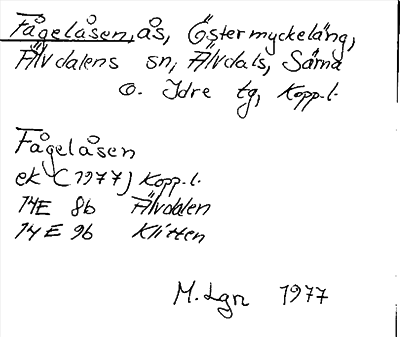 Fågelåsen, ås, Östermyckeläng,
Älvdalens sn, Älvdals, Särna
o. Idre tg, Kopp.l.
Fågelåsen
ek (1977) Kopp.l.
14E 8b Älvdalen
14E 9b Klitten
M. Lgn 1977